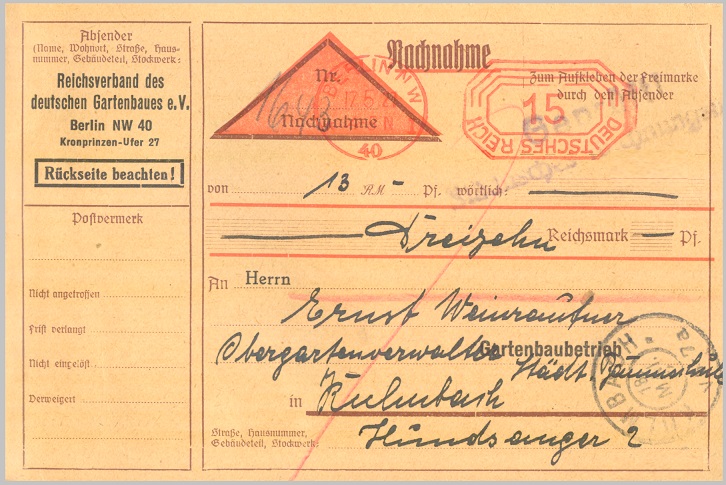 Absender
(Name, Wohnort, Straße, Haus-
nummer, Gebäudeteil, Stockwerk:
Reichsverband des
deutschen Gartenbaues e.V.
Berlin NW 40
Kronprinzen-Ufer 27
Rückseite beachten!
Postvermerk
Nicht angetroffen
Frist verlangt
Nicht eingelöst
Verweigert
Nachnahme
Nr.
Nachnahme
BERLIN NW
17.5.
N
40
15
DEUTSCHES REICH
Zum Aufkleben der Freimarke
durch den Absender
von 13 RM – Pf. wörtlich:
Dreizehn Reichsmark — Pf.
An Herrn
Ernst Weinrautner
Obergartenverwalter
Gartenbaubetrieb
Städt. Baumschule
in Kulmbach
Straße, Hausnummer,
Gebäudeteil, Stockwerk:
Hundsanger 2
KULMBACH